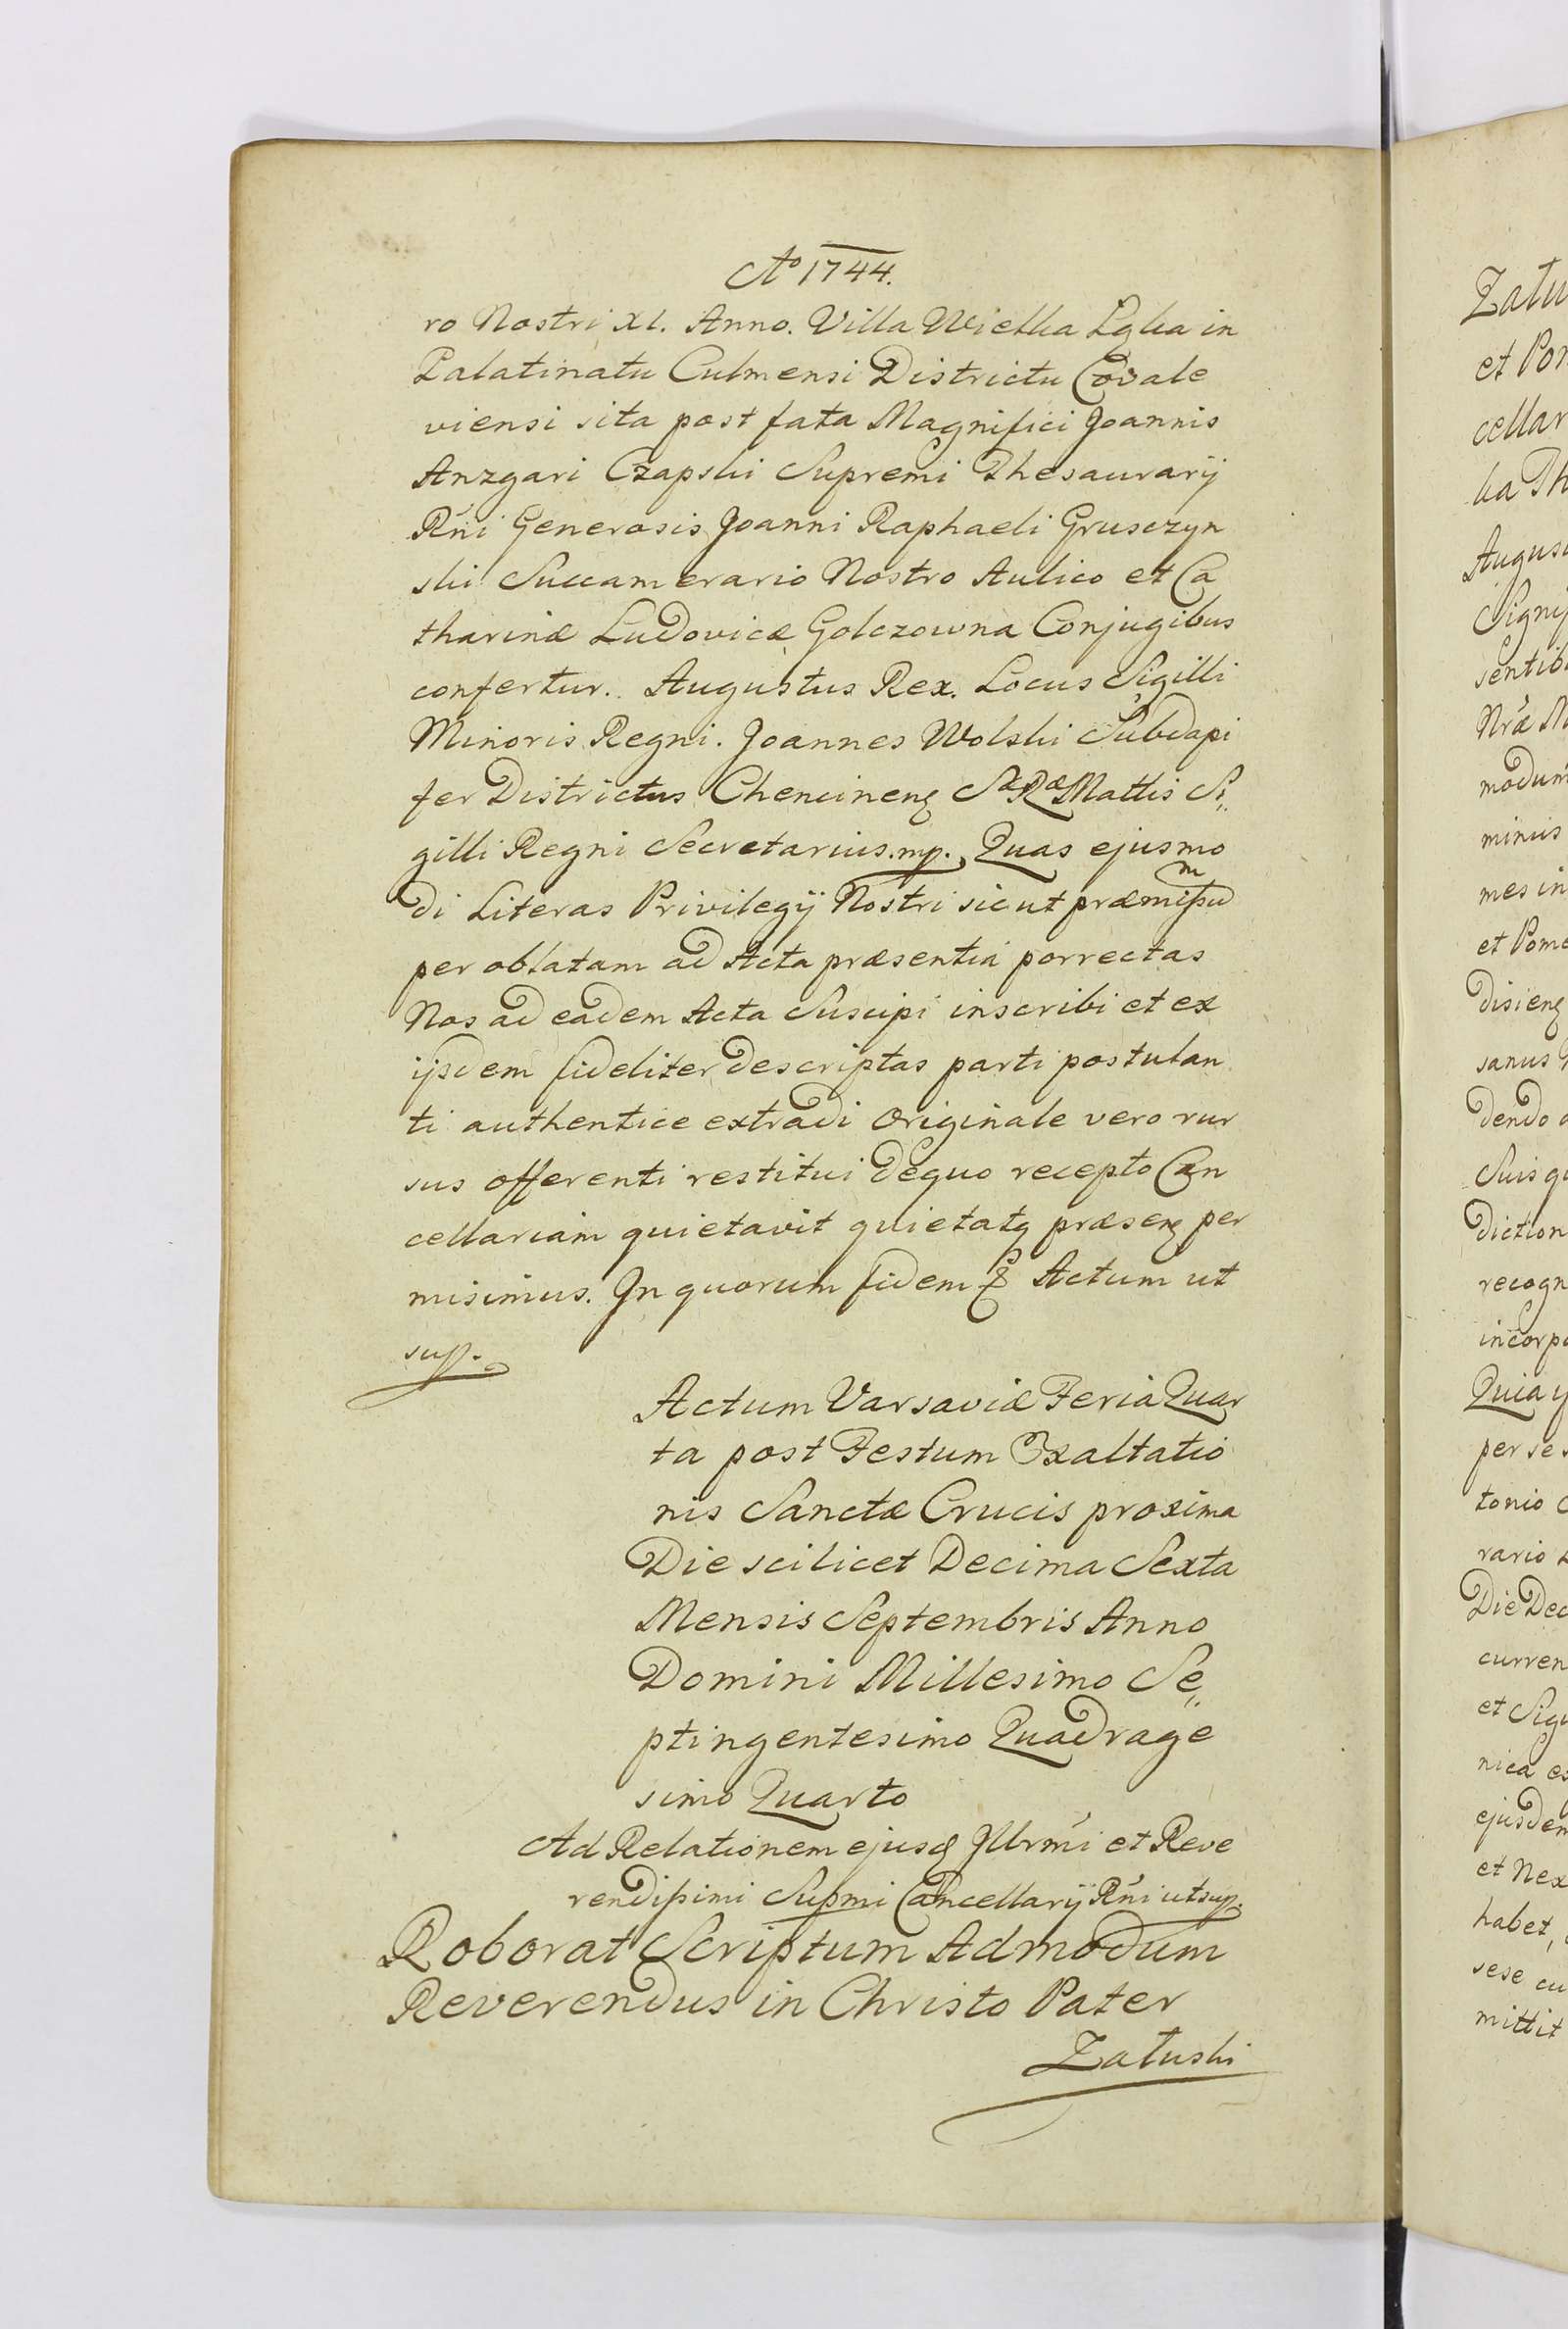 Aº 1744.
ro Nostri XI. Anno. Villa Wielka Ląka in
Palatinatu Culmensi Districtu Covale
viensi sita post fata Magnifici Joannis
Anzgari Czapski Supremi Thesaurarij
Rńi Generosis Joanni Raphaeli Grusczyn
ski Succamerario Nostro Aulico et Ca
tharinæ Ludovicæ Golczowna Conjugibus
confertur. Augustus Rex. Locus Sigilli
Minoris Regni. Joannes Wolski Subdapi
fer Districtus Chencinenȝ Sæ Ræ Mattis Si
gilli Regni Secretarius.mp. Quas ejusmo
di Literas Privilegij Nostri sicut præmißũ
per oblatam ad Acta præsentia porrectas
Nos ad eadem Acta Suscipi inscribi et ex
ijsdem fideliter descriptas parti postulan
ti authentice extradi originale vero rur
sus offerenti restitui dequo recepto Can
cellariam quietavit quietatq præsenȝ per
misimus. In quorum fidem & Actum ut
sup.
Actum Varsaviæ Feria Quar
ta post Festum Exaltatio
nis Sanctæ Crucis proxima
Die scilicet Decima Sexta
Mensis Septembris Anno
Domini Millesimo Se
ptingentesimo Quadrage
simo Quarto
Ad Relationem ejusd Illrmi et Reve
rendißimi Supmi Cancellarij Rńi ut sup.
Roborat Scriptum Admodum
Reverendus in Christo Pater
Załuski
et Po
cellar
ka Th
Augus
Signi
sentib
Nræ M
modum
minus
mes in
et Pome
disienȝ
sanus
dendo
Suis q
diction
recogn
incorp
Quia
per se
tonio
rario
Die Dec
curren
et Sig
nica
ejusdem
et Nex
habet,
sese cu
mittit